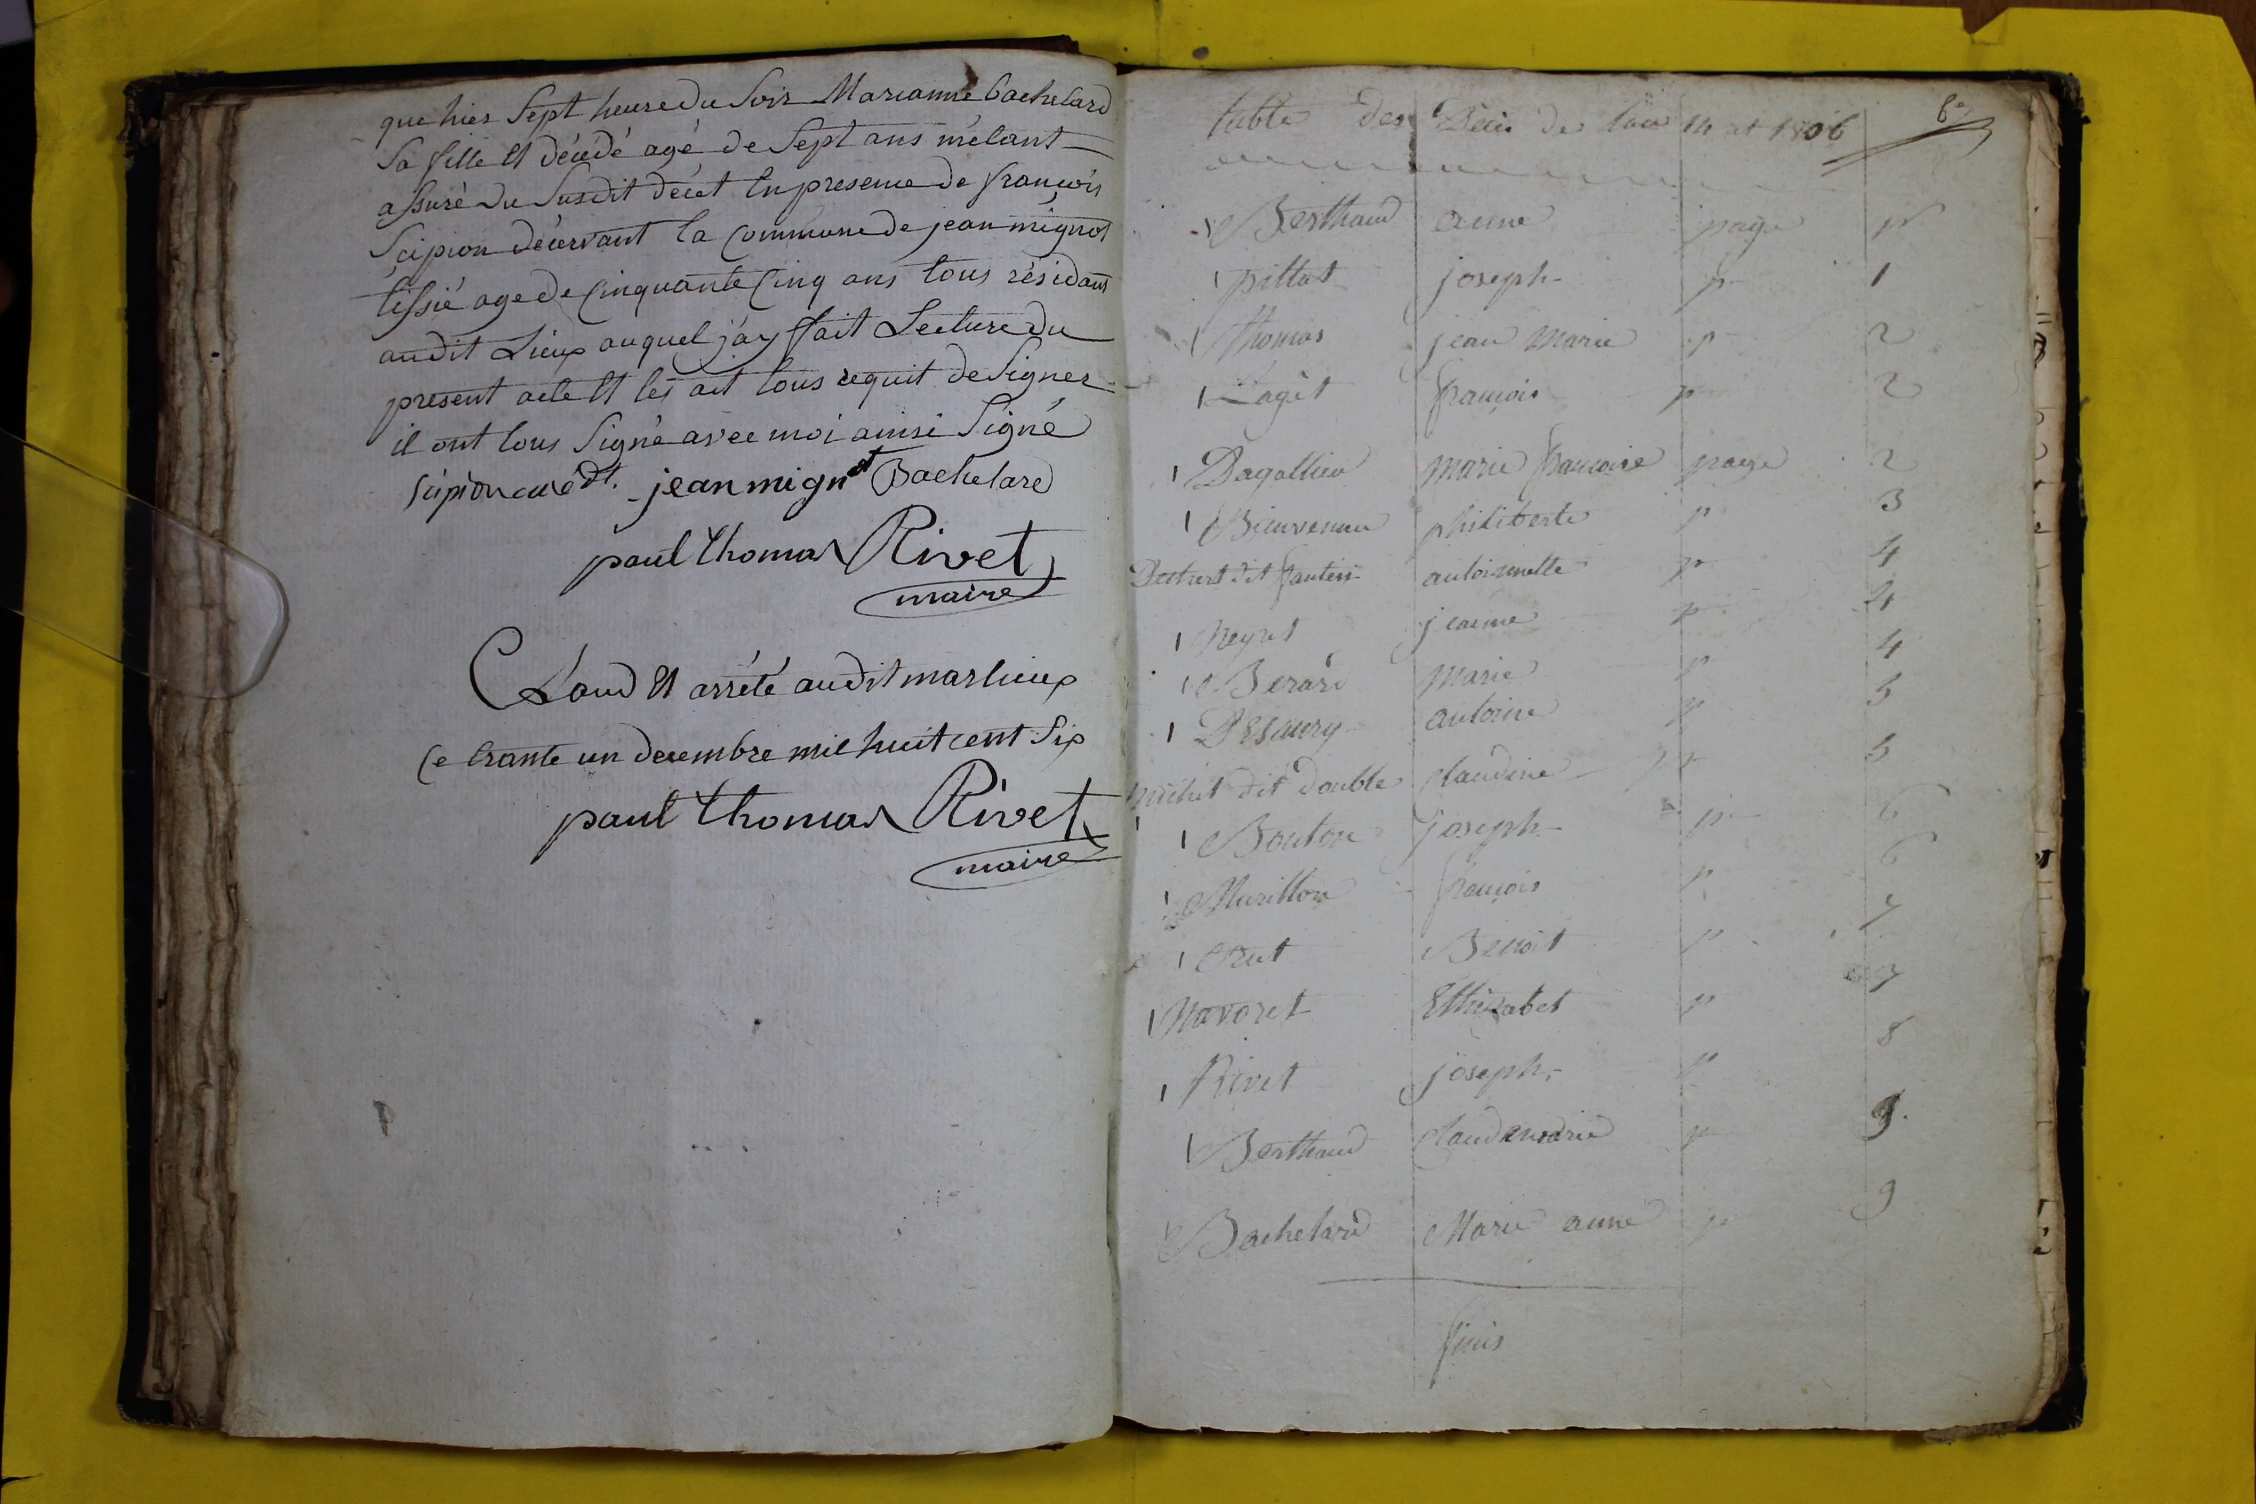 que hier Sept heure du Soir Marianne bachelard
Sa fille Et décédé agé de Sept ans m'etant
assuré du Susdit décét En presence de françois
Scipion décervant la Commune de jean mignot
tissié age de Cinquante Cinq ans tous résidans
audit Lieux auquel j'ay fait Lecture du
present acte Et les ait tous requit de Signer
il ont tous Signé avec moi ainsi Signé
Scipion curé dt. jean mignot Bachelard
paul thomas Rivet
maire
Clouo Et arrêté audit marlieux
Ce trante un decembre mil huit cent Six
paul thomas Rivet
maire
table des Décés de l'an 14 et 1806
Berthaud anne page pr
pillat joseph p 1
thomas jean Marie p 2
Lagêt françois p 2
Dagallier Marie francoise page 2
Bienvenue philiberte p 3
dit antoinnette p 4
Neyret jeanne p 4
Berard Marie p 4
Desaury antoine p 5
michet dit double claudine p 5
Bouton joseph p 6
Murillon françois p 6
Benoit p 7
Navoret Ethizabet p 7
Rivet joseph p 8
Berthaud claudemarie p 9
Bachelard Marie anne p 9
finis